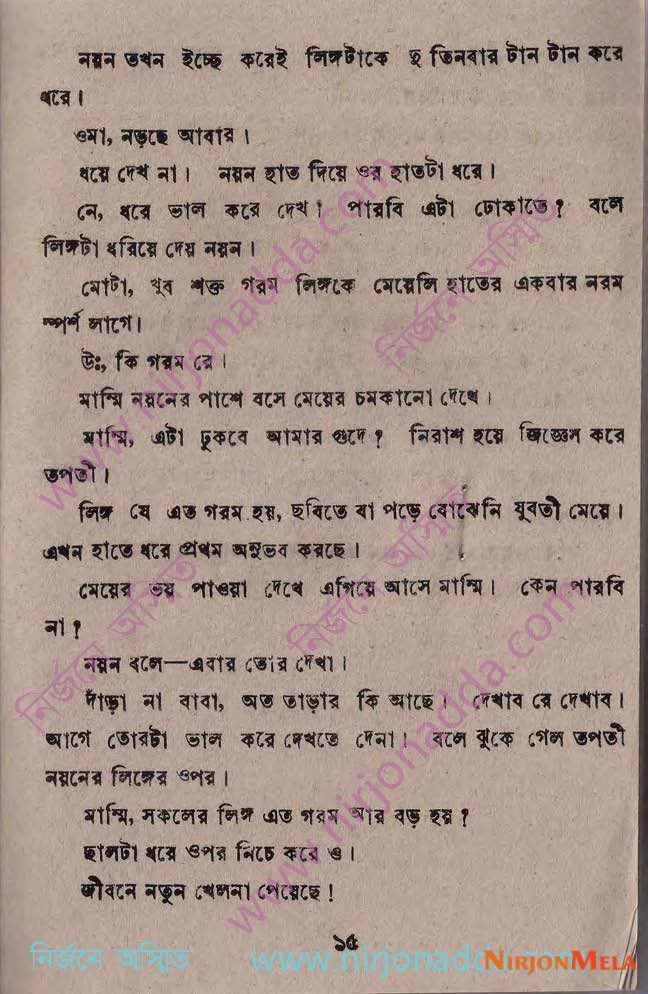 নয়ন তখন ইচ্ছে করেই লিঙ্গটাকে দু তিনবার টান টান করে
ধরে।
ওমা, নড়ছে আবার।
ধয়ে দেখ না। নয়ন হাত দিয়ে ওর হাতটা ধরে।
নে, ধরে ভাল করে দেখ। পারবি এটা ঢোকাতে? বলে
লিঙ্গটা ধরিয়ে দেয় নয়ন।
মোটা, খুব শক্ত গরম লিঙ্গকে মেয়েলি হাতের একবার নরম
স্পর্শ লাগে।
উঃ, কি গরম রে।
মাম্মি নয়নের পাশে বসে মেয়ের চমকানো দেখে।
মাম্মি, এটা ঢুকবে আমার গুদে? নিরাশ হয়ে জিজ্ঞেস করে
তপতী।
লিঙ্গ যে এত গরম হয়, ছবিতে বা পড়ে বোঝেনি যুবতী মেয়ে।
এখন হাতে ধরে প্রথম অনুভব করছে।
মেয়ের ভয় পাওয়া দেখে এগিয়ে আসে মাম্মি। কেন পারবি
না?
নয়ন বলে—এবার তোর দেখা।
দাঁড়া না বাবা, অত তাড়ার কি আছে। দেখাব রে দেখাব।
আগে তোরটা ভাল করে দেখতে দেনা। বলে ঝুকে গেল তপতী
নয়নের লিঙ্গের ওপর।
মাম্মি, সকলের লিঙ্গ এত গরম আর বড় হয়?
ছালটা ধরে ওপর নিচে করে ও।
জীবনে নতুন খেলনা পেয়েছে!
১৫
নির্জনে অস্মিত www.nirjonadda.com NIRJONMELA